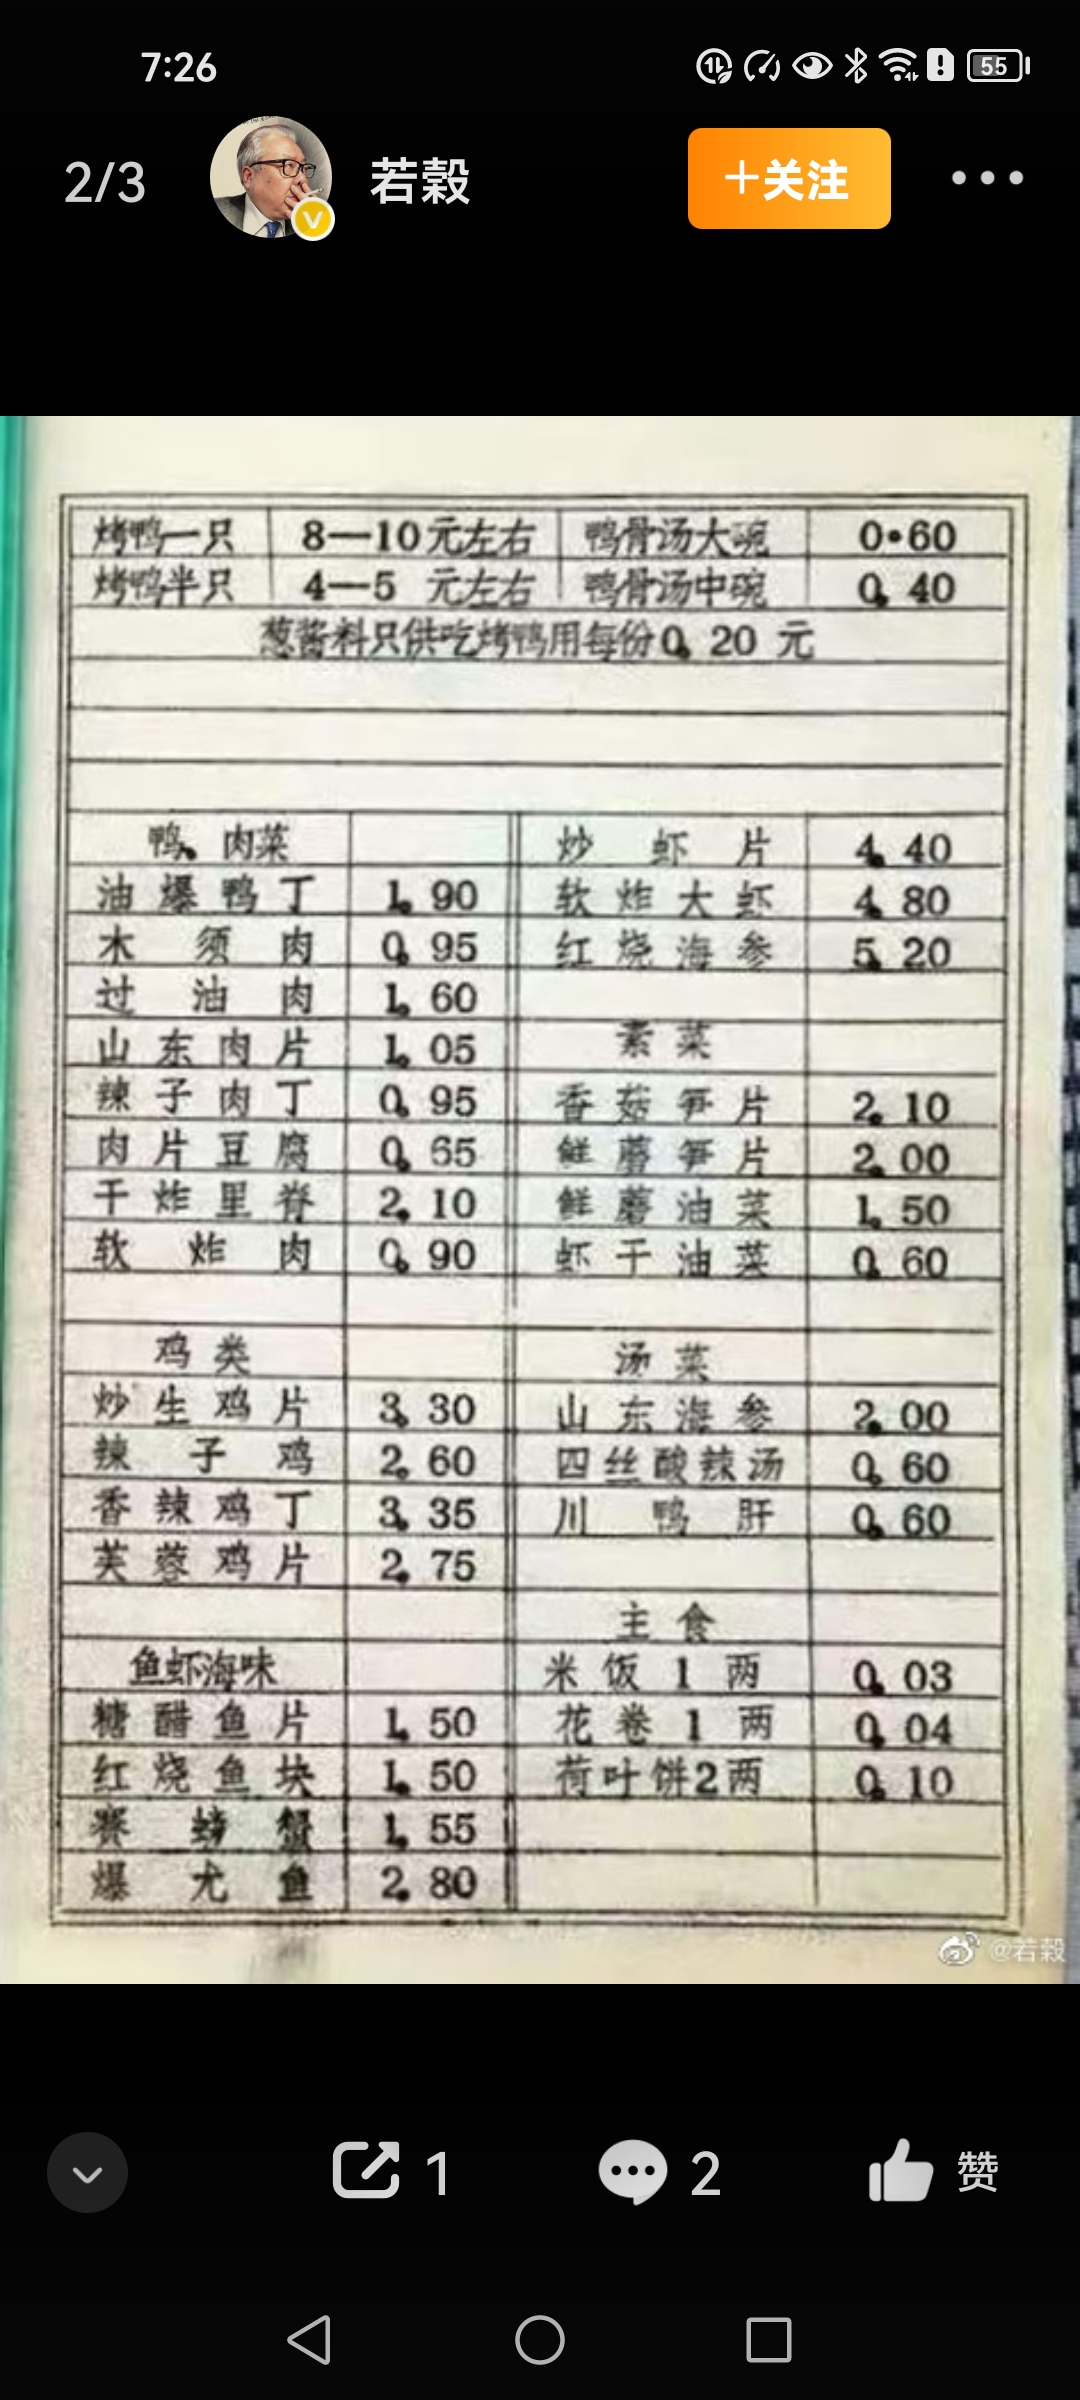 7:26
55
2/3 若榖 +关注
烤鸭一只 8—10元左右 鸭骨汤大碗 0.60
烤鸭半只 4—5 元左右 鸭骨汤中碗 0.40
葱酱料只供吃烤鸭用每份0.20 元
鸭.肉菜 炒虾片 4.40
油爆鸭丁 1.90 软炸大虾 4.80
木须肉 0.95 红烧海参 5.20
过油肉 1.60
山东肉片 1.05 素菜
辣子肉丁 0.95 香菇笋片 2.10
肉片豆腐 0.65 鲜蘑笋片 2.00
干炸里脊 2.10 鲜蘑油菜 1.50
软炸肉 0.90 虾干油菜 0.60
鸡类 汤菜
炒生鸡片 3.30 山东海参 2.00
辣子鸡 2.60 四丝酸辣汤 0.60
香辣鸡丁 3.35 川鸭肝 0.60
芙蓉鸡片 2.75
主食
鱼虾海味 米饭1两 0.03
糖醋鱼片 1.50 花卷1两 0.04
红烧鱼块 1.50 荷叶饼2两 0.10
赛螃蟹 1.55
爆尤鱼 2.80
@若榖
1 2 赞